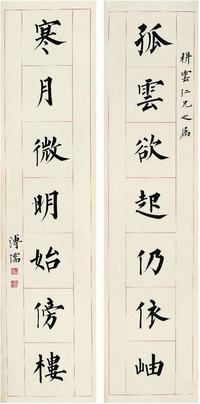 耕雲仁兄之屬
孤雲欲起仍依岫
寒月微明始傍樓
溥儒